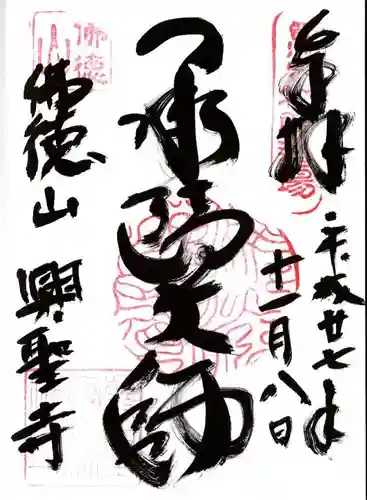 奉拝
平成廿七年
十一月八日
承陽大師
佛徳山
興聖寺
佛徳
山